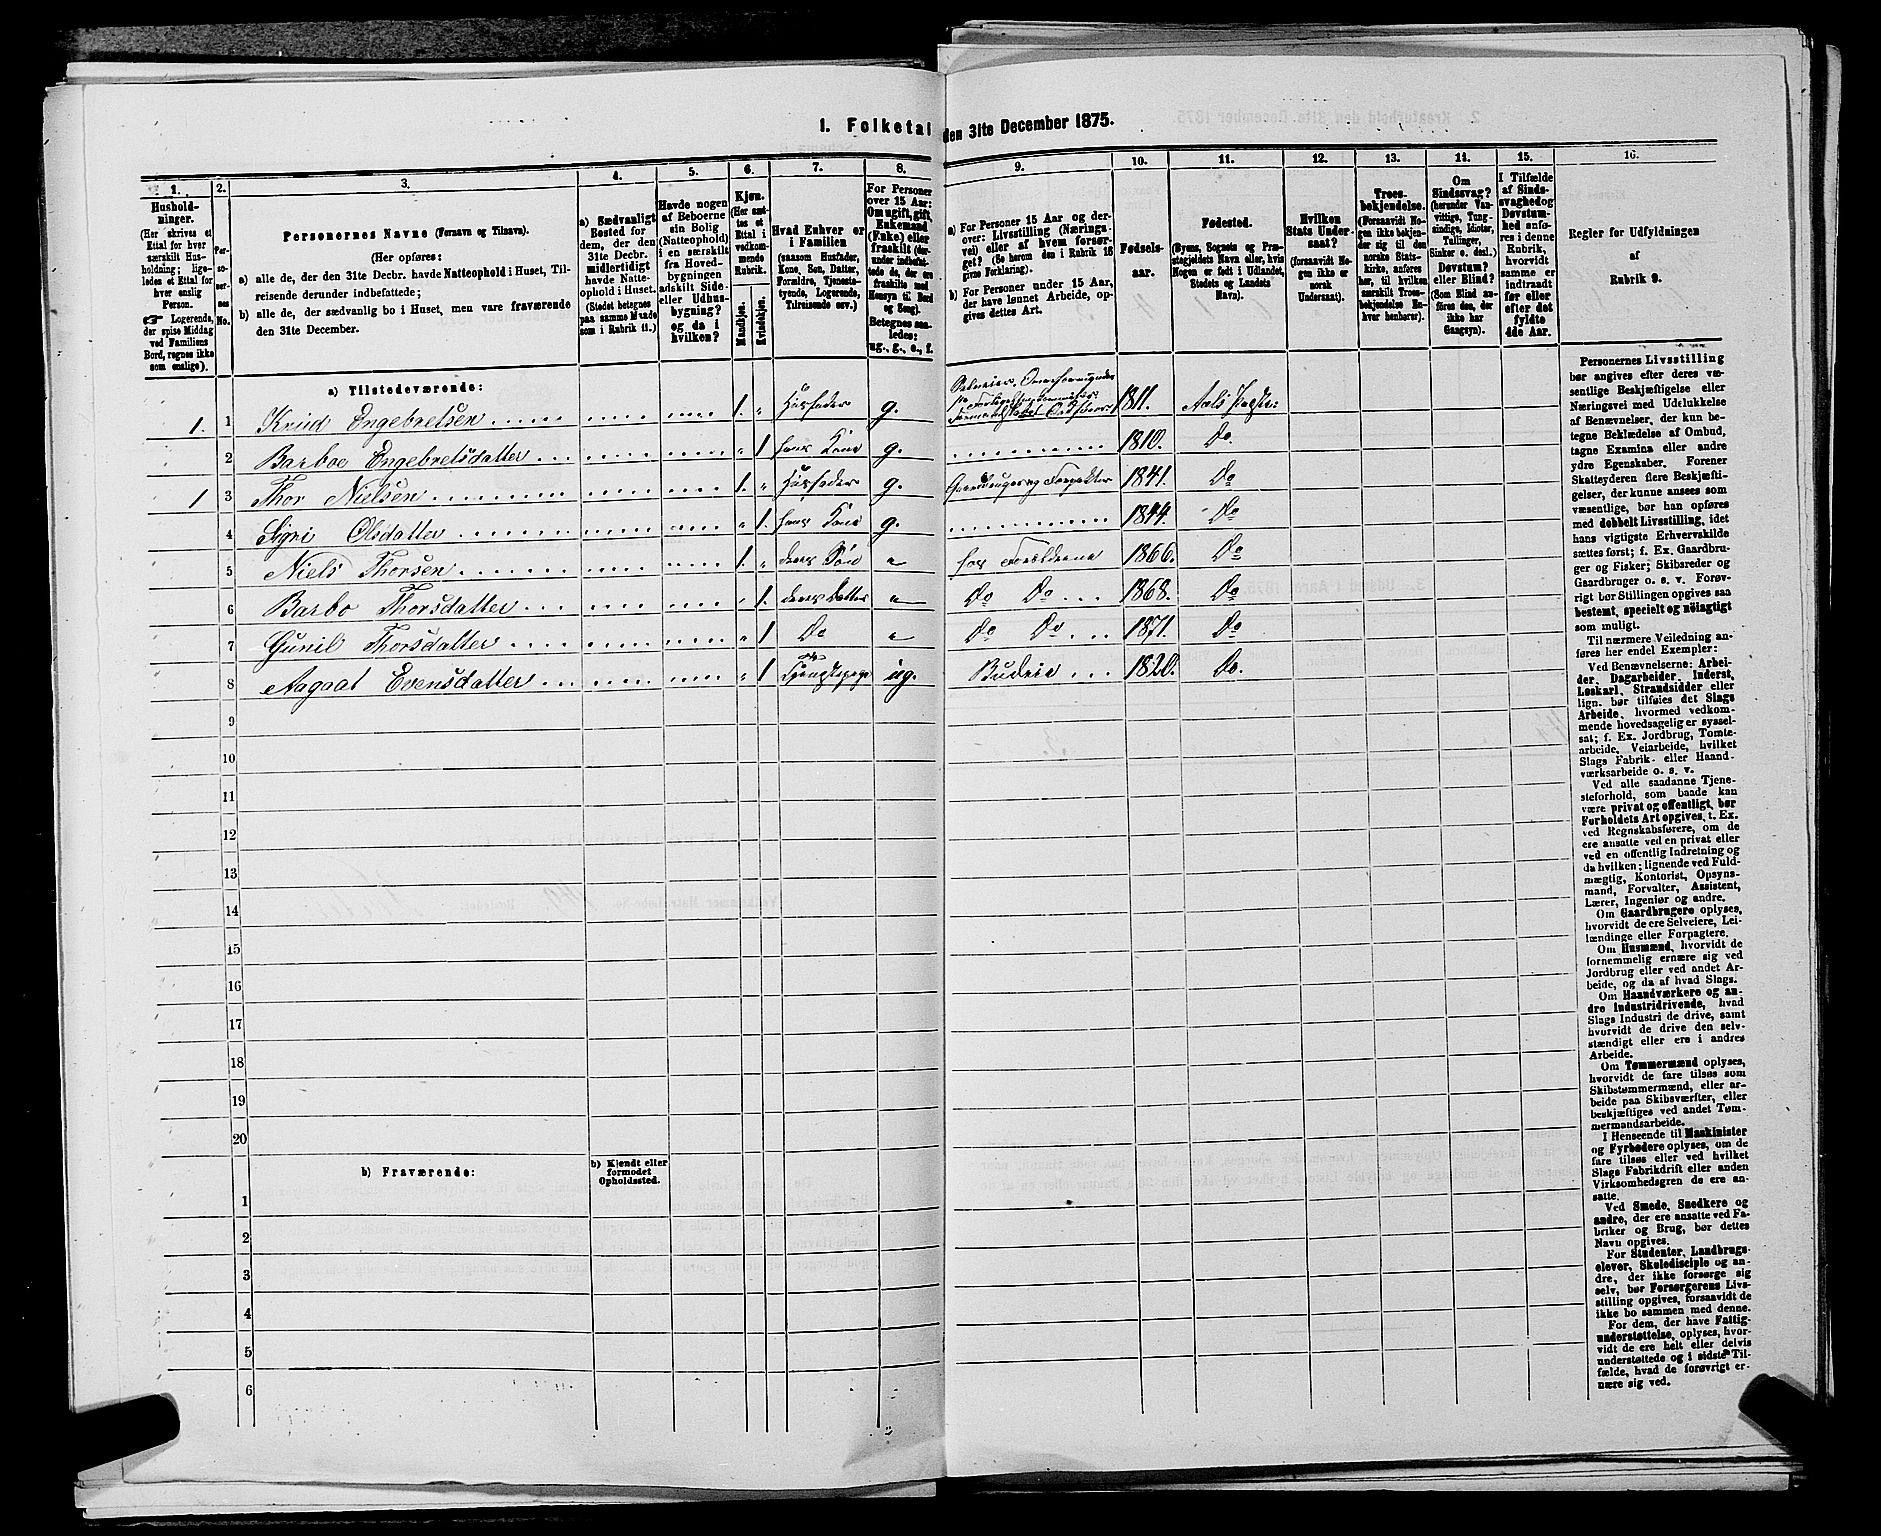 1. Folketal den 31te December 1875.
1.
Hushold-
ninger.
(Her skrives et
Ettal for hver
særskilt Hus-
holdning; lige-
ledes et Ettal for
hver enslig
Person.
☞ Logerende,
der spise Middag
ved Familiens
Bord, regnes ikke
som enslige).
2.
Per-
so-
ner-
nes
No.
3.
Personernes Navne (Fornavn og Tilnavn).
(Her opføres:
a) alle de, der den 31te Decbr. havde Natteophold i Huset, Til-
reisende derunder indbefattede;
b) alle de, der sædvanlig bo i Huset, men vare fraværende
den 31te December.
4.
a) Sædvanligt
Bosted for
dem, der den
31te Decbr.
midlertidigt
havde Natte-
ophold i Huset.
(Stedet betegnes
paa samme Maade
som i Rubrik 11.)
5.
Havde nogen
af Beboerne
sin Bolig
(Natteophold)
i en særskilt
fra Hoved-
bygningen
adskilt Side-
eller Udhus-
bygning?
og da i
hvilken?
6.
Kjøn.
(Her sæt-
tes et
Ettal i
vedkom-
mende
Rubrik.
Mandkjøn.
Kvindekjøn.
7.
Hvad Enhver er
i Familien
(saasom Husfader,
Kone, Søn, Datter,
Forældre, Tjenestu-
tyende, Logerende,
Tilreisende osv.)
8.
For Personer
over 15 Aar:
Om ugift, gift,
Enkemand
(Enke) eller
fraskilt (der-
under indbefat-
tede de, der ere
fraskilte med
Hensyn til Bord
og Seng).
Betegnes saa-
ledes:
ug., g., e., f.
9.
a) For Personer 15 Aar og der-
over: Livsstilling (Nærings-
vei) eller af hvem forsør-
get? (Se herom den i Rubrik 16
givne Forklaring).
b) For Personer under 15 Aar,
der have lønnet Arbeide, op-
gives dettes Art.
10.
Fødsels-
aar.
11.
Fødested.
(Byens, Sognets og Præ-
stegjeldets Navn eller, hvis
Nogen er født i Udlandet,
Stedets og Landets
Navn).
12.
Hvilken
Stats Under-
saat?
(forsaavidt No-
gen ikke er
norsk
Undersaat).
13.
Troes-
bekjendelse.
(Forsaavidt No-
gen ikke bekjen-
der sig til den
norske Stats-
kirke, anføres
her, til hvilken
særskilt Troes-
bekjendelse En-
hver henhører).
14.
Om
Sindssvag?
(herunder Van-
vittige, Tung-
sindige, Idioter,
Tullinger,
Sinker o. desl.)
Døvstum?
eller Blind?
(Som Blind an-
føres den, der
ikke har
Gangsyn).
15.
I Tilfælde
af Sinds-
svaghed og
Døvstum-
hed anføres
i denne
Rubrik,
hvorvidt
samme er
indtraadt
før eller
efter det
fyldte
4de Aar.
16.
Regler for Udfyldningen
af
Rubrik 9.
a) Tilstedeværende:
1. 1 Knud Engebretsen 1. „ Husfader g. 1811.
2 Barboe Engebretsdatter „ 1 hans Kone g. 1810. Do.
1 3 Thor Nielsen 1. „ Husfader g. Gaardbruger og Forpakter 1841. Do
4 Sigri Olsdatter „ 1. hans Kone g. 1844. Do
5 Niels Thorsen 1. „ deres Søn „ hos Forældrene 1866. Do
6 Barbo Thorsdatter „ 1. deres Datter „ Do Do 1868. Do
7 Gunil Thorsdatter „ 1 Do „ Do Do 1871. Do
8 Aagaat Evensdatter „ 1 ug. Budeie 1820. Do.
9
10
11
12
13
14
15
16
17
18
19
20
b) Fraværende:
b) Kjendt eller
formodet
Opholdssted.
1
2
3
4
5
6
Personernes Livsstilling
bør angives efter deres væ-
sentlige Beskjæftigelse eller
Næringsvei med Udelukkelse
af Benævnelser, der kun be-
tegne Beklædelse af Ombud,
tagne Examina eller andre
ydre Egenskaber. Forener
Skatteyderen flere Beskjæfti-
gelser, der kunne ansees som
væsentlige, bør han opføres
med dobbelt Livsstilling, idet
hans vigtigste Erhvervskilde
sættes først; f. Ex. Gaardbru-
ger og Fisker; Skibsreder og
Gaardbruger o. s. v. Forøv-
rigt bør Stillingen opgives saa
bestemt, specielt og nøiagtigt
som muligt.
Til nærmere Veiledning an-
føres her endel Exempler:
Ved Benævnelserne: Arbei-
der, Dagarbeider, Inderst,
Løskarl, Strandsidder eller
lign. bør tilføies det Slags
Arbeide, hvormed vedkom-
mende hovedsagelig er syssel-
sat; f. Ex. Jordbrug, Tomte-
arbeide, Veiarbeide, hvilket
Slags Fabrik- eller Haand-
værksarbeide o. s. v.
Ved alle saadanne Tjene-
steforhold, som baade kan
være privat og offentligt, bør
Forholdets Art opgives, t. Ex.
ved Regnskabsførere, om de
ere ansatte ved en privat eller
ved en offentlig Indretning og
da hvilken; lignende ved Fuld-
mægtig, Kontorist, Opsyns-
mand, Forvalter, Assistent,
Lærer, Ingeniør og andre.
Om Gaardbrugere oplyses,
hvorvidt de ere Selveiere, Lei-
lændinge eller Forpagtere.
Om Husmænd, hvorvidt de
fornemmelig ernære sig ved
Jordbrug eller ved andet Ar-
beide, og da af hvad Slags.
Om Haandværkere og an-
dre Industridrivende, hvad
Slags Industri de drive, samt
hvorvidt de drive den selv-
stændigt eller ere i andres
Arbeide.
Om Tømmermænd oplyses,
hvorvidt de fare tilsøs som
Skibstømmermænd, eller ar-
beide paa Skibsværfter, eller
beskjæftiges ved andet Tøm-
mermandsarbeide.
I Henseende til Maskinister
og Fyrbødere oplyses, om de
fare tilsøs eller ved hvilket
Slags Fabrikdrift eller anden
Virksomhedsgren de ere an-
satte.
Ved Smede, Snedkere og
andre, der ere ansatte ved Fa-
briker og Brug, bør dettes
Navn opgives.
For Studenter, Landbrugs-
elever, Skoledisciple og an-
dre, der ikke forsørge sig
selv, bør Forsørgerens Livs-
stilling opgives, forsaavidt de
ikke bo sammen med denne.
For dem, der have Fattig-
understøttelse, oplyses, hvor-
vidt de ere helt eller delvis
understøttede og i sidste Til-
fælde, hvad de forøvrigt er-
nære sig ved.